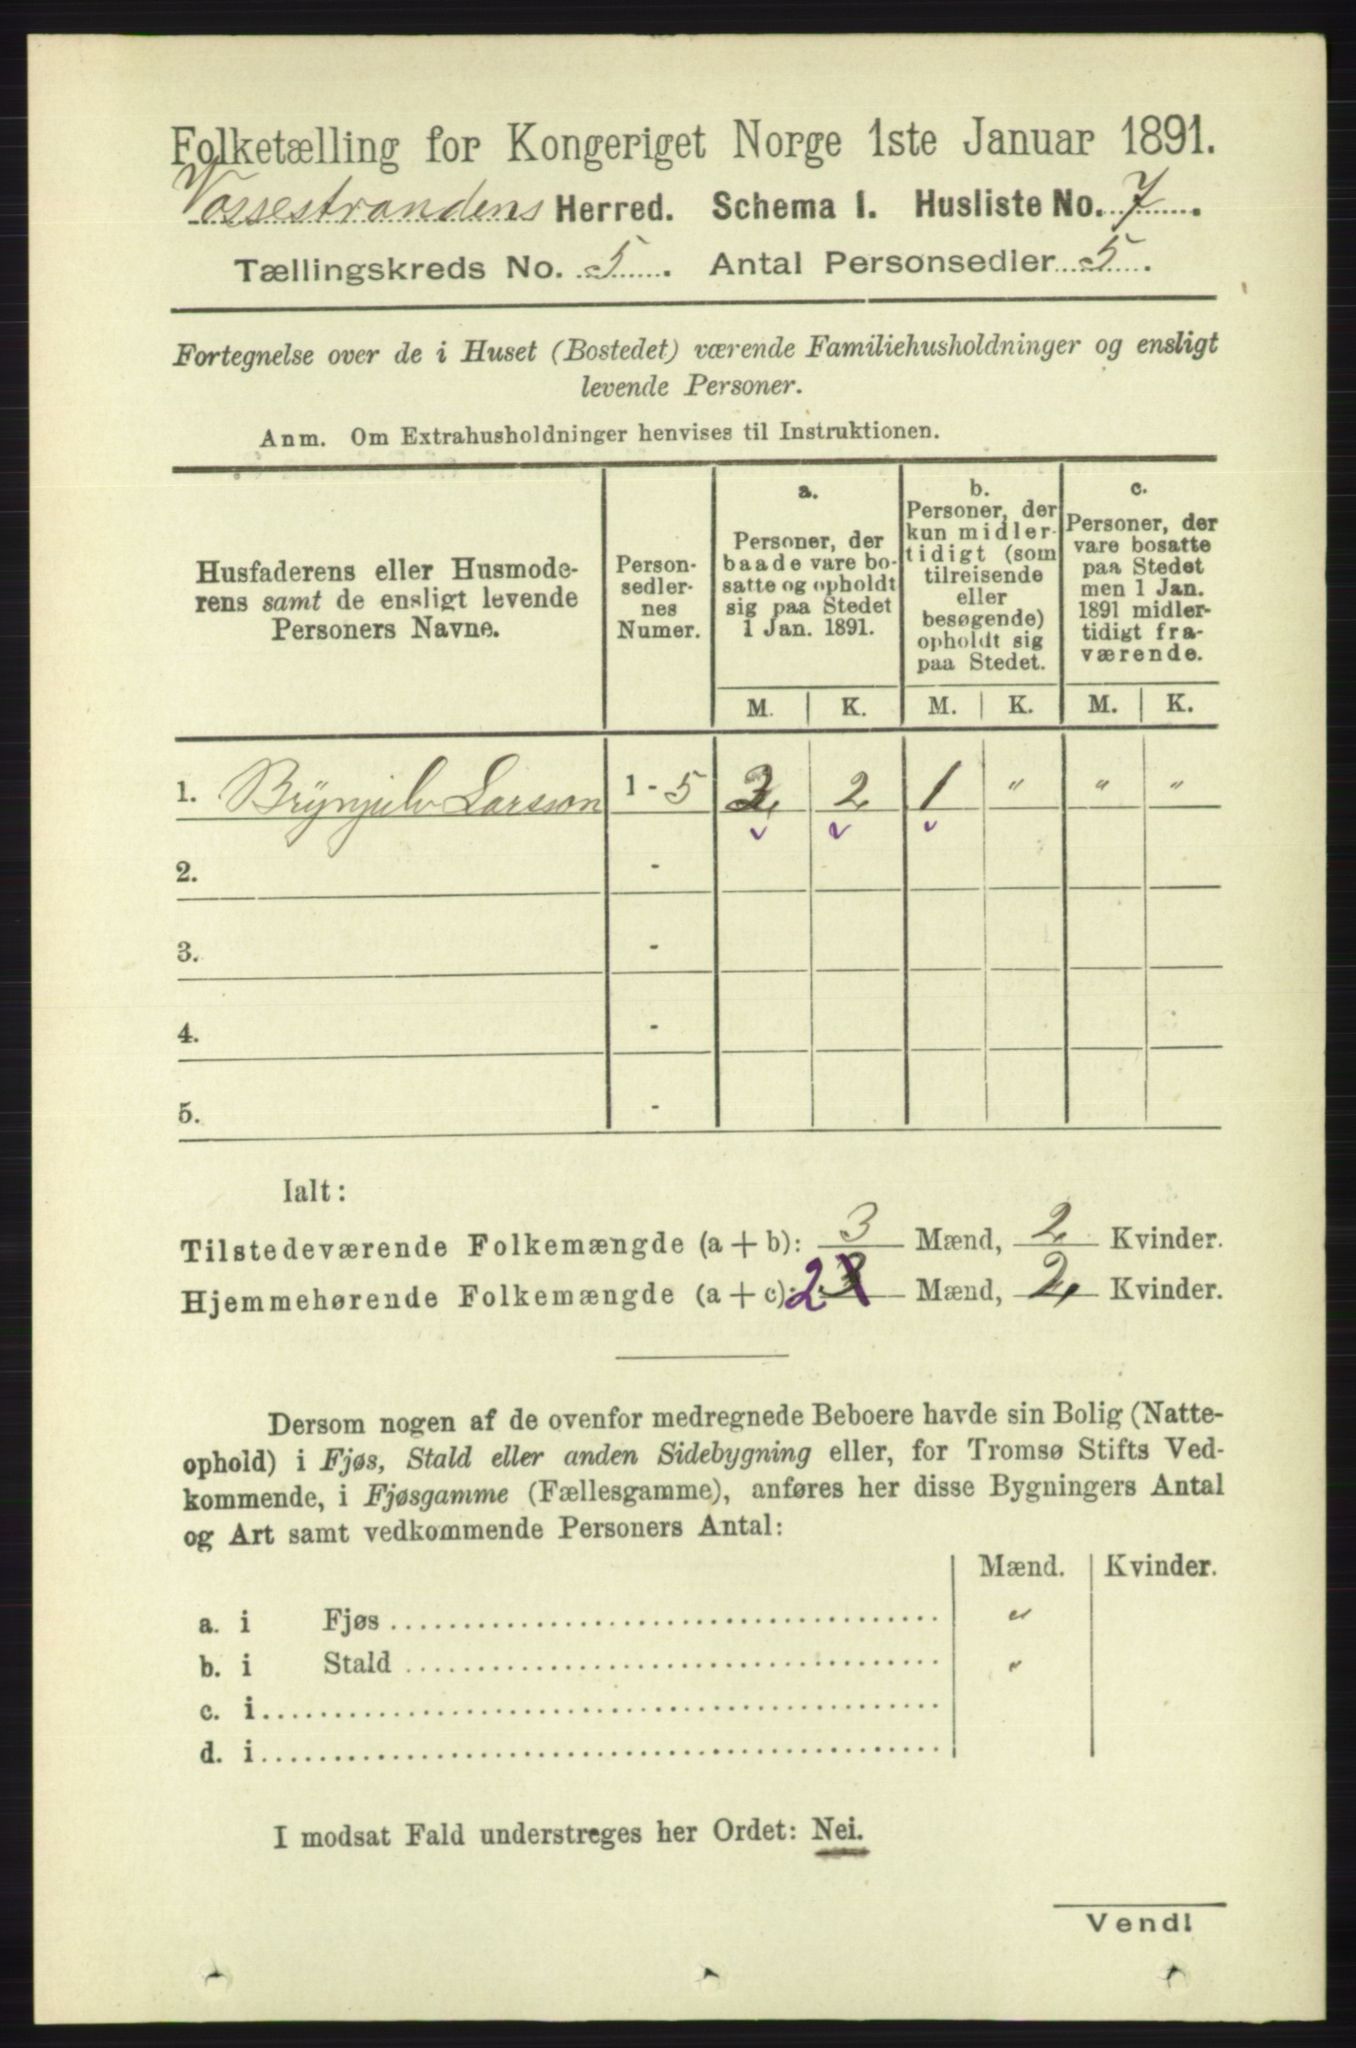 Folketælling for Kongeriget Norge 1ste Januar 1891.
Vossestrandens Herred. Schema 1. Husliste No. 7.
Tællingskreds No. 5. Antal Personsedler 5.
Fortegnelse over de i Huset (Bostedet) værende Familiehusholdninger og ensligt
levende Personer.
Anm. Om Extrahusholdninger henvises til Instruktionen.
Husfaderens eller Husmode-
rens samt de ensligt levende
Personers Navne.
Person-
sedler-
nes
Numer.
a.
Personer, der
baade vare bo-
satte og opholdt
sig paa Stedet
1 Jan. 1891.
b.
Personer, der
kun midler-
tidigt (som
tilreisende
eller
besøgende)
opholdt sig
paa Stedet.
c.
Personer, der
vare bosatte
paa Stedet
men 1 Jan.
1891 midler-
tidigt fra-
værende.
M. K. M. K. M. K.
1. Brynjulv Larsson 1 - 5 2 2 1 " " "
2. -
3. -
4. -
5. -
Ialt:
Tilstedeværende Folkemængde (a + b): 3 Mænd, 2 Kvinder.
Hjemmehørende Folkemængde (a + c): 2 Mænd, 2 Kvinder.
Dersom nogen af de ovenfor medregnede Beboere havde sin Bolig (Natte-
ophold) i Fjøs, Stald eller anden Sidebygning eller, for Tromsø Stifts Ved-
kommende, i Fjøsgamme (Fællesgamme), anføres her disse Bygningers Antal
og Art samt vedkommende Personers Antal:
Mænd. Kvinder.
a. i Fjøs "
b. i Stald "
c. i
d. i
I modsat Fald understreges her Ordet: Nei.
Vend!